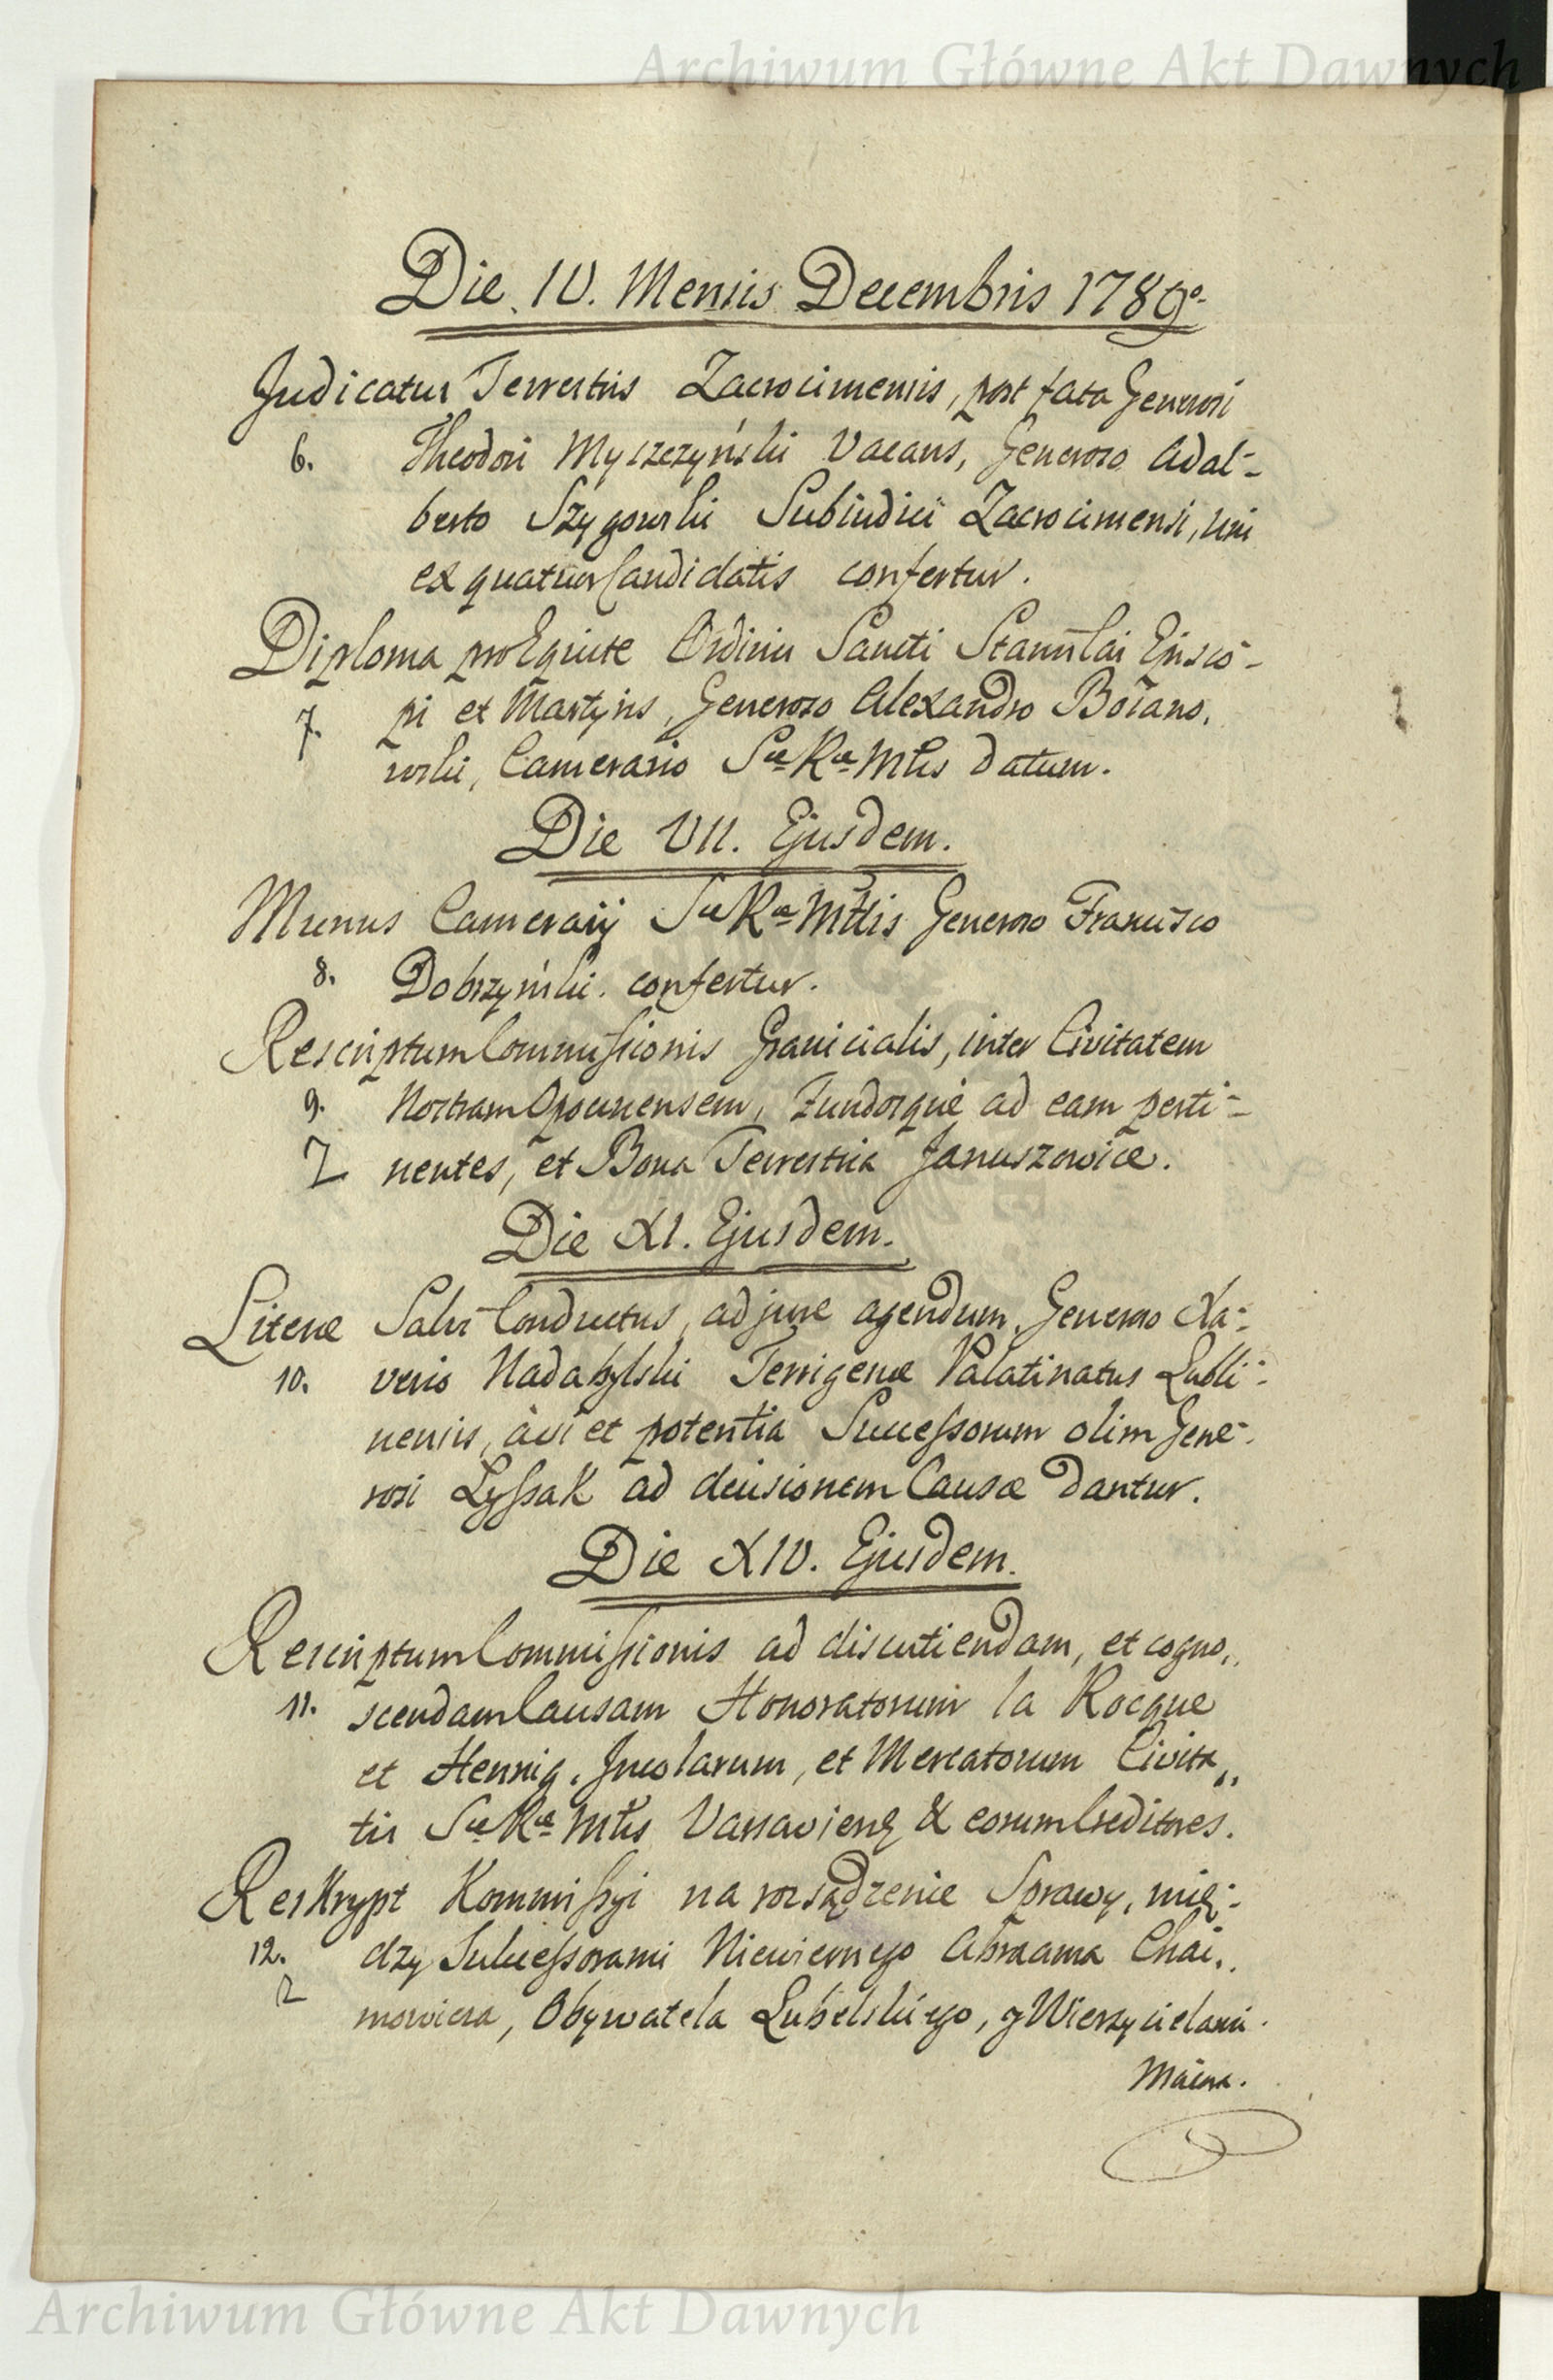 Archiwum Główne Akt Dawnych
Die IV. Mensis Decembris 1789o.
Judicatus Terrestris Zacrocimensis, post fata Generosi
6. Theodori Myszczyński Vacans, Generoso Adal-
berto Szygowski Subiudici Zacrocimensi, uni
ex quatuor Candidatis confertur.
Diploma pro Equite Ordinis Sancti Stanislai Episco-
7. pi et Martyris, Generoso Alexandro Boiano,
wski, Camerario Sae Rae Mtis datum.
Die VII. Ejusdem.
Munus Camerarij Sae Rae Mttis Generoso Francisco
8. Dobrzyński confertur.
Rescriptum Commissionis Granicialis, inter Civitatem
9. Nostram Opocznensem, Fundosque ad eam perti-
nentes, et Bona Terrestria Januszowice.
Die XI. Ejusdem.
Literae Salvi Conductus, ad jure agendum, Generoso Xa-
10. verio Terrigenae Palatinatus Lubli-
nensis, à vi et potentia Successorum olim Gene-
rosi Lyssak ad decisionem Causae Dantur.
Die XIV. Ejusdem.
Rescriptum Commissionis ad discutiendam, et cogno,,
11. scendam Causam Honoratorum la Rocque
et Hennig, Incolarum, et Mercatorum Civita,,
tis Sae Rae Mtis Varsaviens & eorum Creditores.
Reskrypt Kommissyi na rozsądzenie Sprawy, mię-
12. dzy Sukcessorami Niewiernego Abraama Chai,,
mowicza, Obywatela Lubelskiego, z Wierzycielami
Archiwum Główne Akt Dawnych